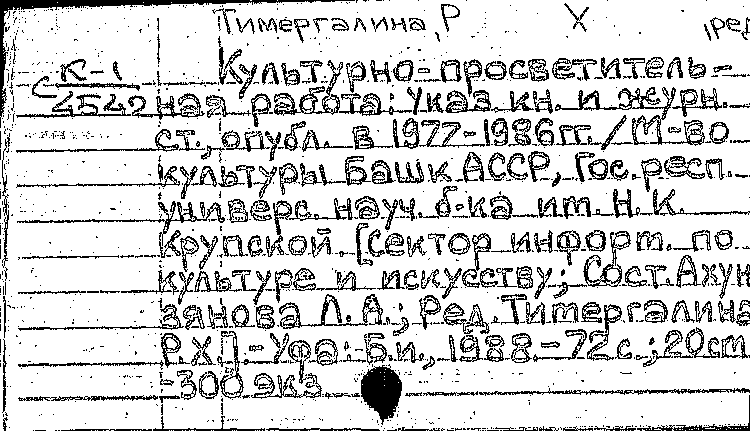 Тимергалина, Р Х ,ред
Культурно-просветитель-
С К-1
4540 ная работа: Указ. кн. и журн.
ст., опубл. в 1977-1986гг. / М-во
культуры Башк АССР, Гос. респ.
универс. науч. б-ка им. Н. К.
Крупской. [Сектор информ. по
культуре и искусству; Сост. Ахун
зянова Л. А.; Ред. Тимергалина
Р. Х.]. - Уфа: Б.и., 1988. - 72 с.; 20см
-300 экз